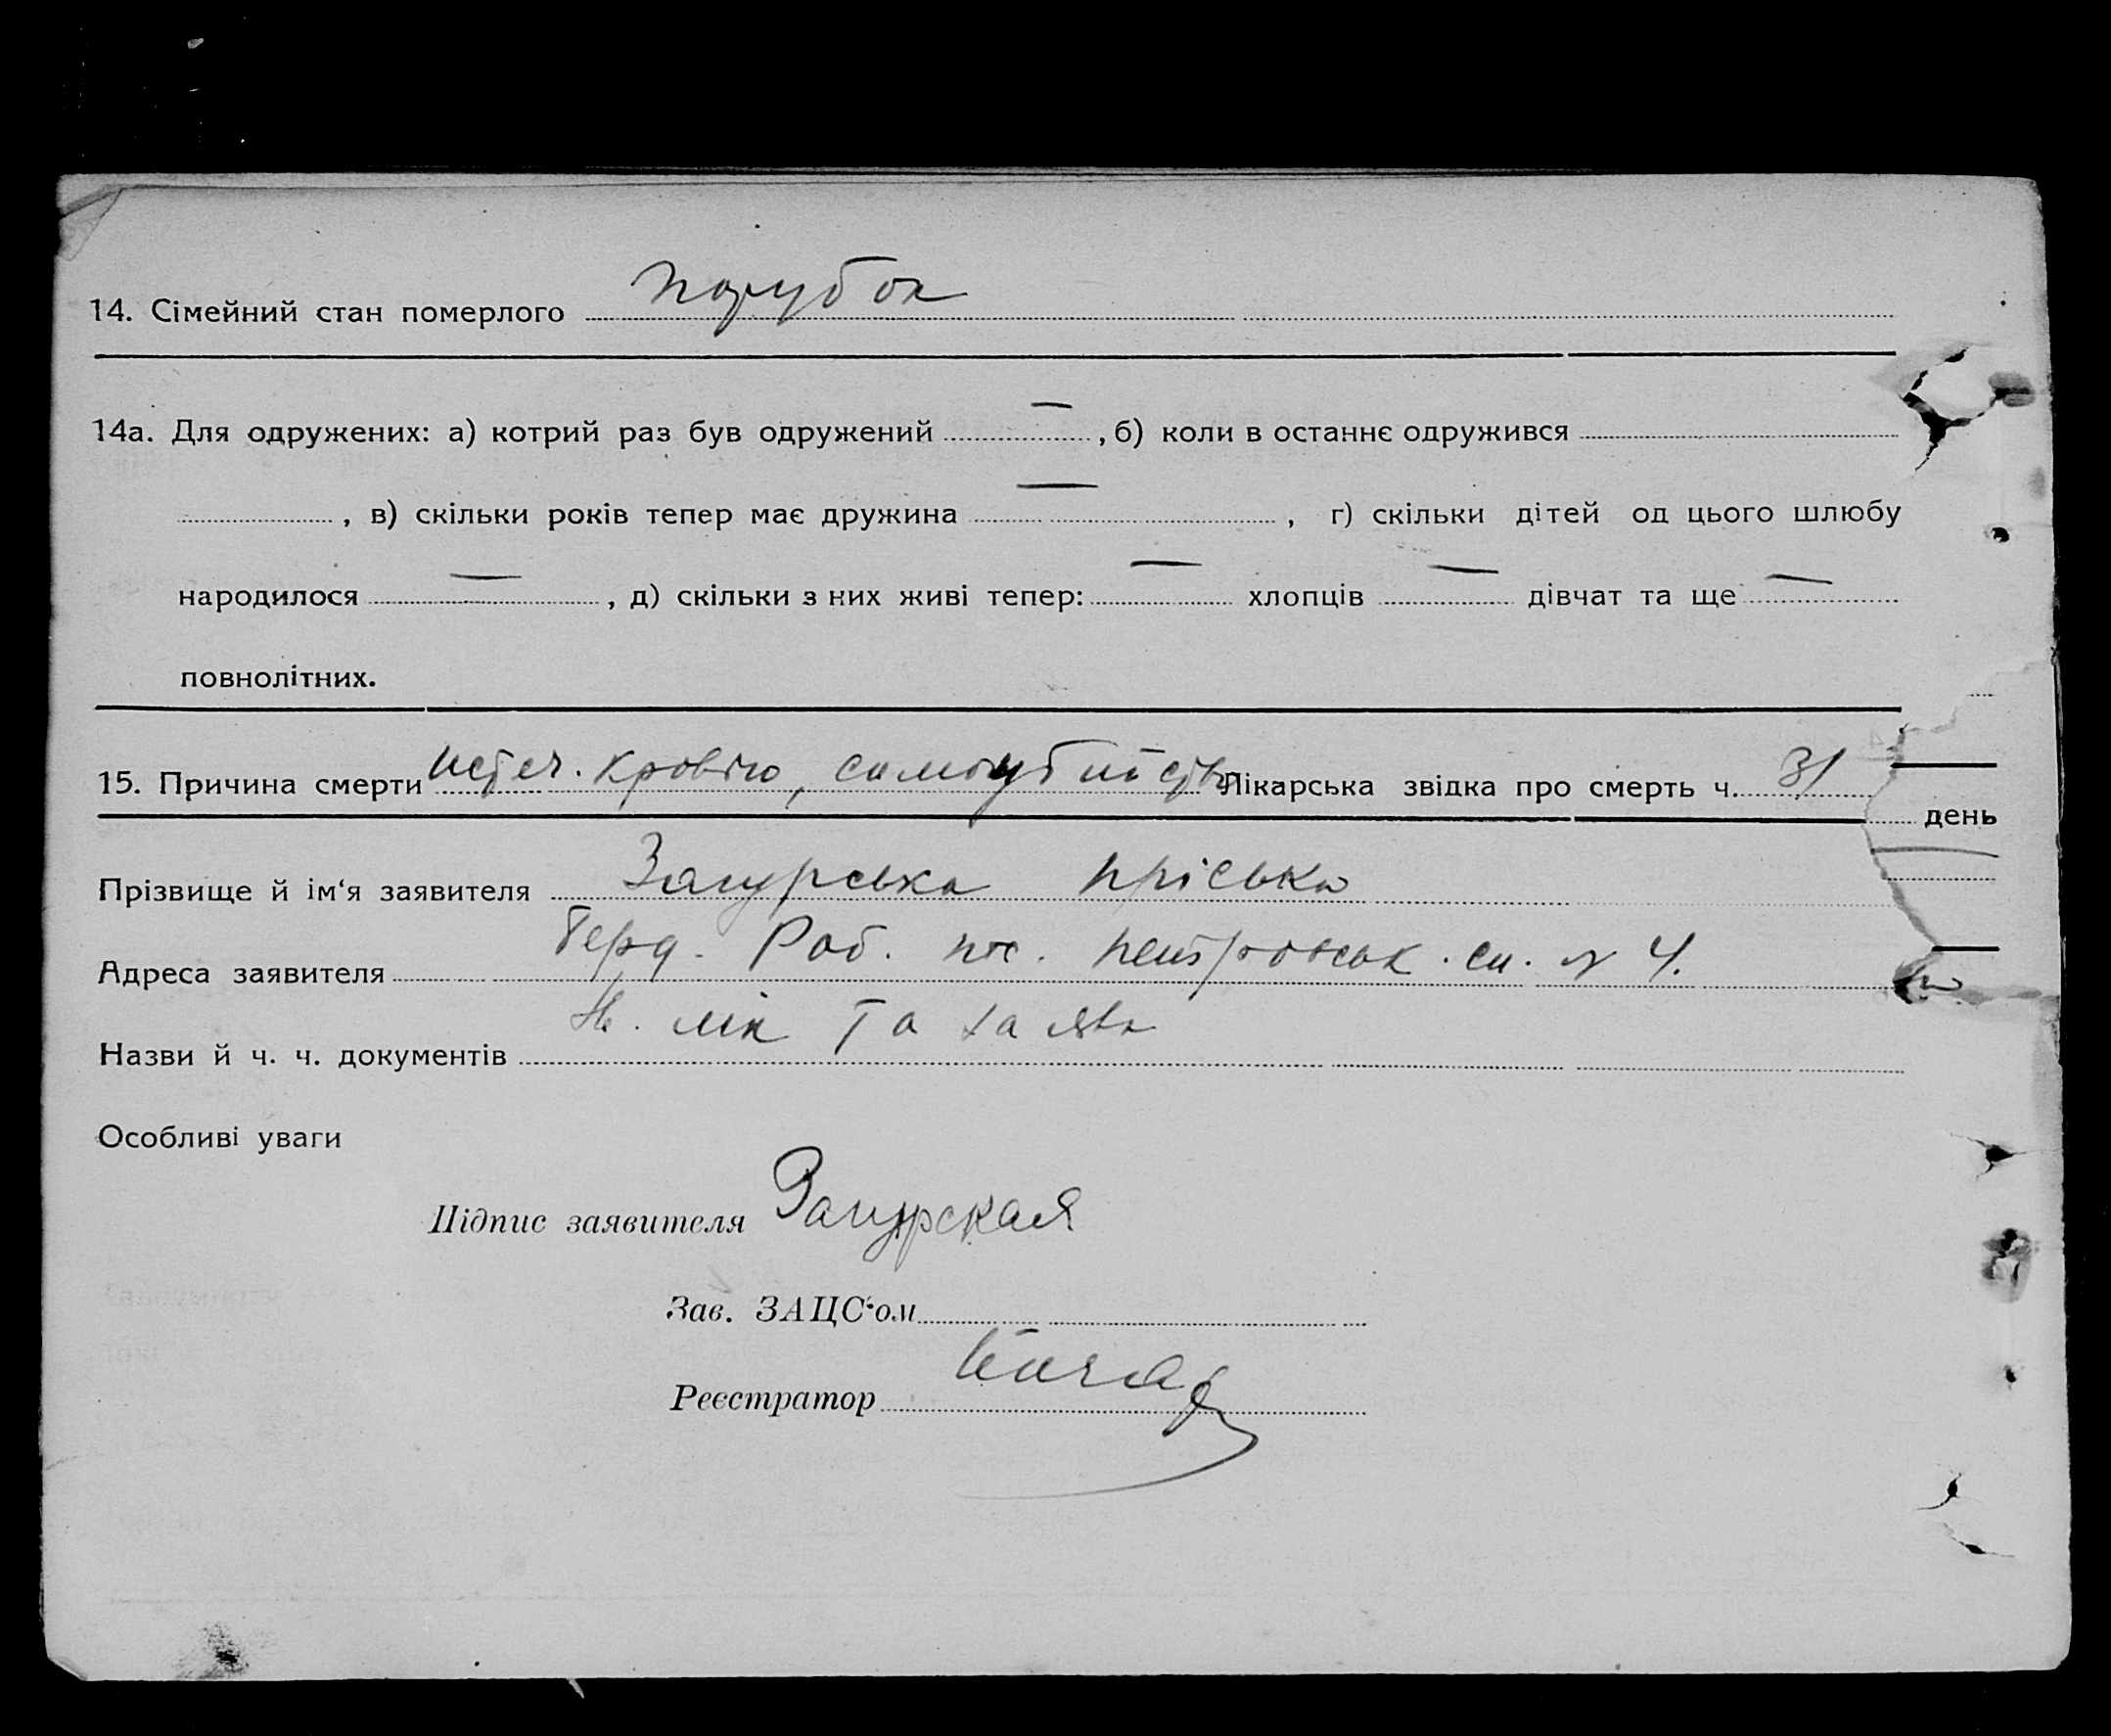 14. Сімейний стан померлого парубок
14а. Для одружених: а) котрий раз був одружений — , б) коли в останнє одружився
, в) скільки років тепер має дружина — , г) скільки дітей од цього шлюбу
народилося — , д) скільки з них живі тепер: — хлопців — дівчат та ще —
повнолітних.
15. Причина смерти истеч. кровію, самоубийство Лікарська звідка про смерть ч. 31
день
Прізвище й ім‘я заявителя Загурська Пріська
Адреса заявителя Берд. Раб. пос. Петровськ. № 4.
Назви й ч. ч. документів лік та заява
Особливі уваги
Підпис заявителя Загурская
Зав. ЗАЦС‘ом
Реєстратор